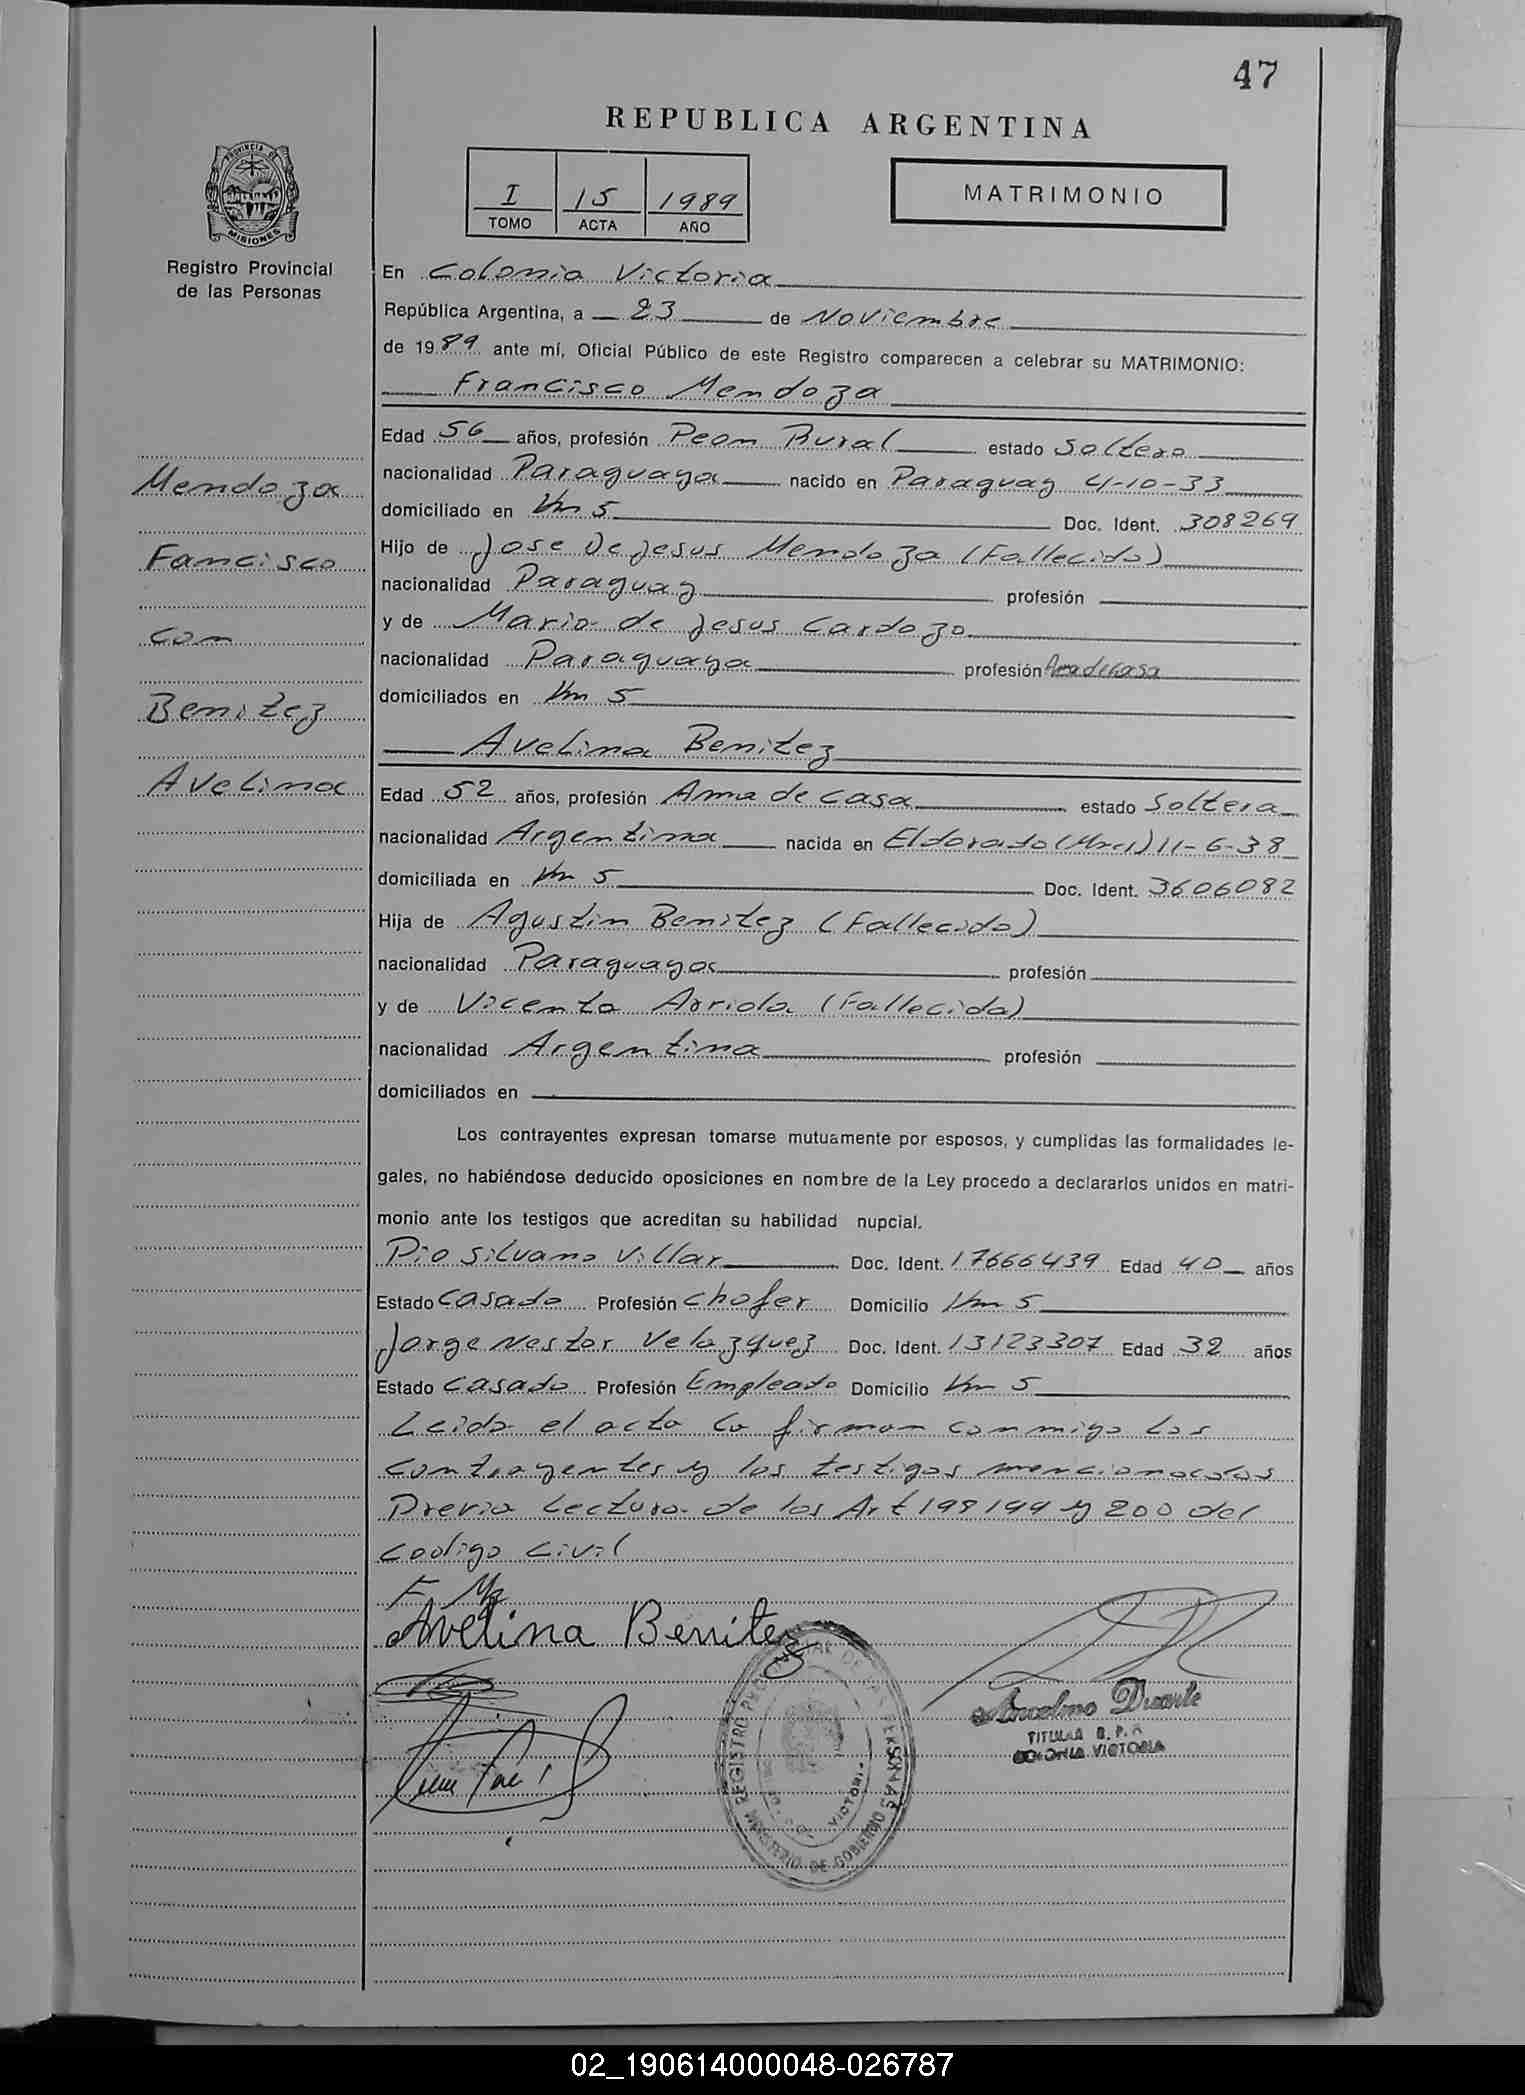 47
REPUBLICA ARGENTINA
I 15 1989
TOMO ACTA AÑO
MATRIMONIO
PROVINCIA DE
MISIONES
Registro Provincial
de las Personas
En Colonia Victoria
República Argentina, a 23 de Noviembre
de 1989 ante mí, Oficial Público de este Registro comparecen a celebrar su MATRIMONIO:
Francisco Mendoza
Edad 56 años, profesión Peon Rural estado Soltero
nacionalidad Paraguaya nacido en Paraguay 4-10-33
domiciliado en Km 5 Doc. Ident. 308269
Hijo de Jose de Jesus Mendoza (Fallecido)
nacionalidad Paraguay profesión
y de Maria de Jesus Cardozo
nacionalidad Paraguaya profesión Ama de casa
domiciliados en Km 5
Avelina Benitez
Edad 52 años, profesión Ama de casa estado Soltera
nacionalidad Argentina nacida en Eldorado (Mnes) 11-6-38
domiciliada en Km 5 Doc. Ident. 3606082
Hija de Agustin Benitez (Fallecido)
nacionalidad Paraguaya profesión
y de Vicenta Arriola (Fallecida)
nacionalidad Argentina profesión
domiciliados en
Los contrayentes expresan tomarse mutuamente por esposos, y cumplidas las formalidades le-
gales, no habiéndose deducido oposiciones en nombre de la Ley procedo a declararlos unidos en matri-
monio ante los testigos que acreditan su habilidad nupcial.
Pio Silvano Villar Doc. Ident. 17666439 Edad 40 años
Estado Casado Profesión Chofer Domicilio Km 5
Jorge Nestor Velazquez Doc. Ident. 13123307 Edad 32 años
Estado Casado Profesión Empleado Domicilio Km 5
Leida el acta la firman conmigo los
contrayentes y los testigos mencionados
Previa Lectura de los Art 198 199 y 200 del
codigo civil
Mendoza
Fancisco
con
Benitez
Avelina
F Mz
Avelina Benitez
REGISTRO PROVINCIAL DE LAS PERSONAS
MINISTERIO DE GOBIERNO
VICTORIA
Anselmo Duarte
TITULAR R.P.P.
COLONIA VICTORIA
02_190614000048-026787